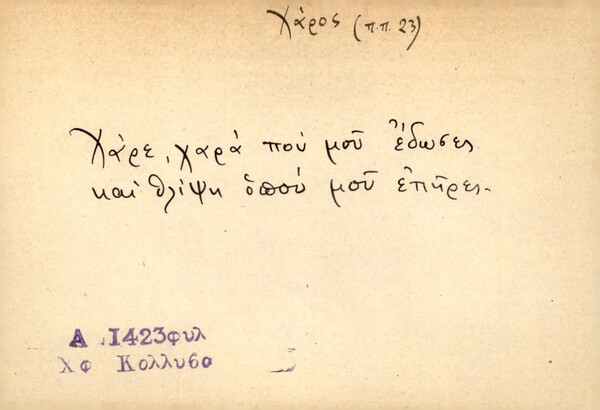 Χάρος (π.π. 23)
Χάρε, χαρά πού μοῦ ἔδωσες
καί θλίψη ὁπού μοῦ ἐπῆρες.
Α .1423φυλ
Χφ Κολλυβα